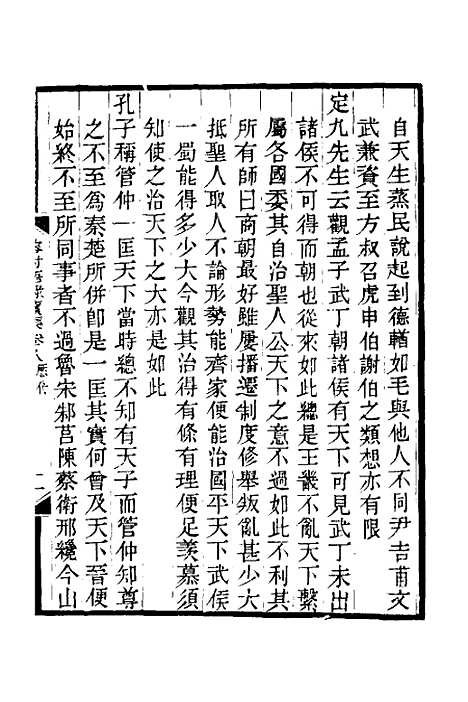 自天生蒸民說起到德輶如毛與他人不同尹吉甫文
武兼資至方叔召虎申伯謝伯之類想亦有限
定九先生云觀孟子武丁朝諸侯有天下可見武丁未出
諸侯不可得而朝也從來如此總是王畿不亂天下繫
屬各國委其自治聖人公天下之意不過如此不利其
所有師曰商朝最好雖屢播遷制度修舉叛亂甚少大
抵聖人取人不論形勢能齊家便能治國平天下武侯
一蜀能得多少大今觀其治得有條有理便足羨慕須
知使之治天下之大亦是如此
孔子稱管仲一匡天下當時總不知有天子而管仲知尊
之不至為秦楚所併卽是一匡其實何曾及天下晉便
始終不至所同事者不過魯宋邾莒陳蔡衛邢纔今山